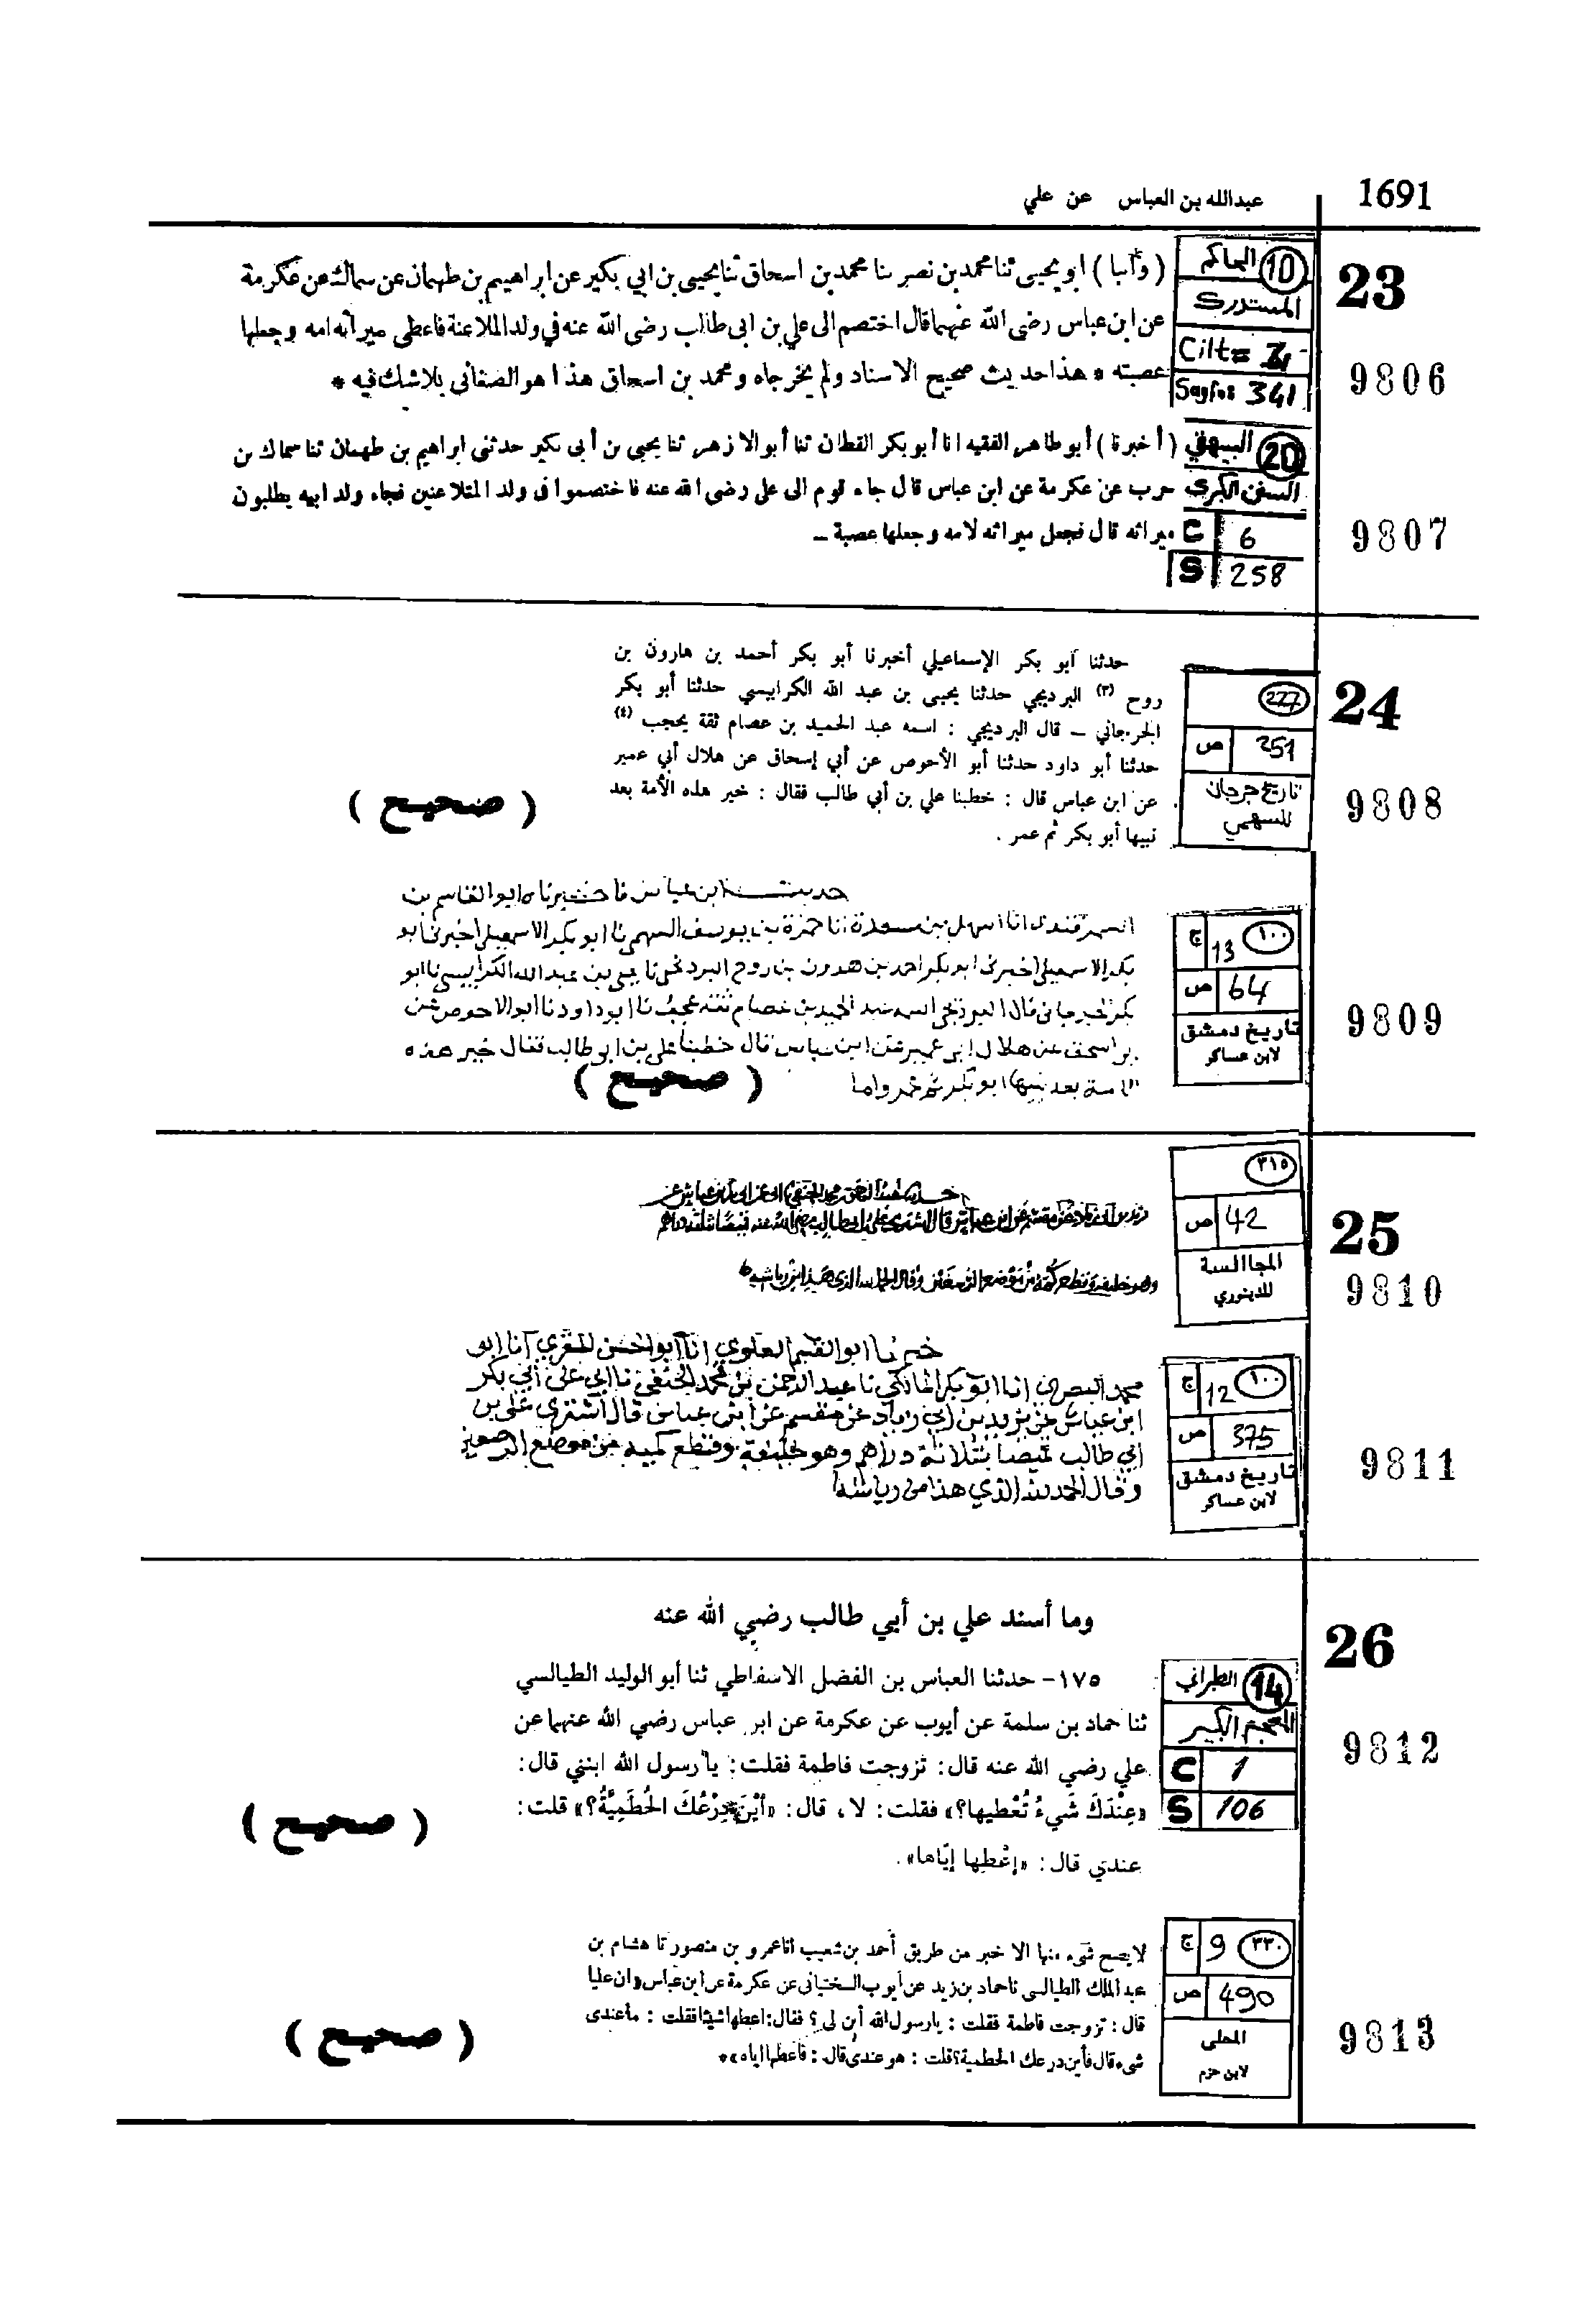 1691
عبدالله بن العباس عن علي
23
10 الحاكم
المستدرك
Cilt= 4
Sayfas 341
9806
( وأنبا ) ابو يحيى ثنا محمد بن نصر ثنا محمد بن اسحاق ثنا يحيى بن ابي بكير عن ابراهيم بن طهمان عن سماك عن عكرمة
عن ابن عباس رضى الله عنهما قال اختصم الى علي بن ابى طالب رضى الله عنه في ولد الملاعنة فاعطى ميراثه امه وجعلها
عصبته * هذا حديث صحيح الاسناد ولم يخرجاه ومحمد بن اسحاق هذا هو الصغانى بلا شك فيه *
20 البيهقي
السنن الكبرى
C 6
S 258
9807
( أخبرنا ) أبو طاهر الفقيه انا أبو بكر القطان ثنا أبو الازهر ثنا يحيى بن أبى بكير حدثنى ابراهيم بن طهمان ثنا سماك بن
حرب عن عكرمة عن ابن عباس قال جاء قوم الى على رضى الله عنه فاختصموا فى ولد المتلاعنين فجاء ولد ابيه يطلبون
ميراثه قال فجعل ميراثه لامه وجعلها عصبة –
24
227
ص 251
تاريخ جرجان
للسهمي
9808
حدثنا أبو بكر الإسماعيلي أخبرنا أبو بكر أحمد بن هارون بن
روح (٣) البرديجي حدثنا يحيى بن عبد الله الكرابيسي حدثنا أبو بكر
الجرجاني – قال البرديجي : اسمه عبد الحميد بن عصام ثقة يحجب (٤)
حدثنا أبو داود حدثنا أبو الأحوص عن أبي إسحاق عن هلال أبي عمير
عن ابن عباس قال : خطبنا علي بن أبي طالب فقال : خير هذه الأمة بعد
نبيها أبو بكر ثم عمر .
( صحيح )
١٠٠ ج 13
ص 64
تاريخ دمشق
لابن عساكر
9809
حديث ابن عباس فاخبرناه ابو القاسم بن
السمرقندى انا اسمعيل بن مسعدة انا حمزة بن يوسف السهمي نا ابو بكر الاسمعيلي اخبرنى ابو
بكر الاسمعيلي اخبرنى ابو بكر احمد بن هرون بن روح البردنجى نا يحيى بن عبد الله الكرابيسي نا ابو
بكر الجرجاني قال البردنجي اسمه عبد الحميد بن عصام ثقة نا ابو داود نا ابو الاحوص عن
ابو اسحق عن هلال ابى عمير عن ابن عباس قال خطبنا علي بن ابو طالب فقال خير هذه
الامة بعد نبيها ابو بكر ثم عمر واما
( صحيح )
25
٣١٥
ص 42
المجالسة
للدينوري
9810
محمد الحنفي
عن مقسم عن ابن عباس قال اشترى علي بن ابي طالب رضي الله عنه قميصا بثلاثة دراهم
وهو خليفة وقطع كمه من موضع الرسغين وقال الحمد لله الذي هذا من رياشه
١٠٠ ج 12
ص 375
تاريخ دمشق
لابن عساكر
9811
خبرنا ابو القسم العلوي انا ابو الحسن المقري انا ابو
محمد المصري انا ابو بكر المالكي نا عبد الرحمن بن محمد الحنفي نا ابي على ابي بكر
ابن عباش عن يزيد بن ابي زياد عن مقسم عن ابن عباس قال اشترى على بن
ابي طالب قميصا بثلاثة دراهم وهو خليفة وقطع كميه من موضع الرصغين
وقال الحمد لله الذي هذا من رياشه
26
وما أسند علي بن أبي طالب رضي الله عنه
14 الطبراني
المعجم الكبير
C 1
S 106
9812
١٧٥- حدثنا العباس بن الفضل الاسفاطي ثنا أبو الوليد الطيالسي
ثنا حماد بن سلمة عن أيوب عن عكرمة عن ابن عباس رضي الله عنهما عن
علي رضي الله عنه قال: تزوجت فاطمة فقلت: يا رسول الله ابنني قال:
«عِنْدَكَ شَيءُ تُعْطيها؟» فقلت: لا، قال: «أَيْنَ دِرْعُكَ الحُطَمِيَّةُ؟» قلت:
عندي قال: «إعْطِها إيّاها».
( صحيح )
٣٣٠ ج 9
ص 490
المحلى
لابن حزم
9813
لا يصح شيء منها الا خبر من طريق أحمد بن شعيب انا عمرو بن منصور نا هشام بن
عبد الملك الطيالسى نا حماد بن زيد عن أيوب السختيانى عن عكرمة عن ابن عباس «ان عليا
قال : تزوجت فاطمة فقلت : يا رسول الله أبن لى ؟ فقال : اعطها شيئا فقلت : ما عندى
شىء قال فأين درعك الحطمية ؟ قلت : هو عندى قال : فاعطها اياه» *
( صحيح )